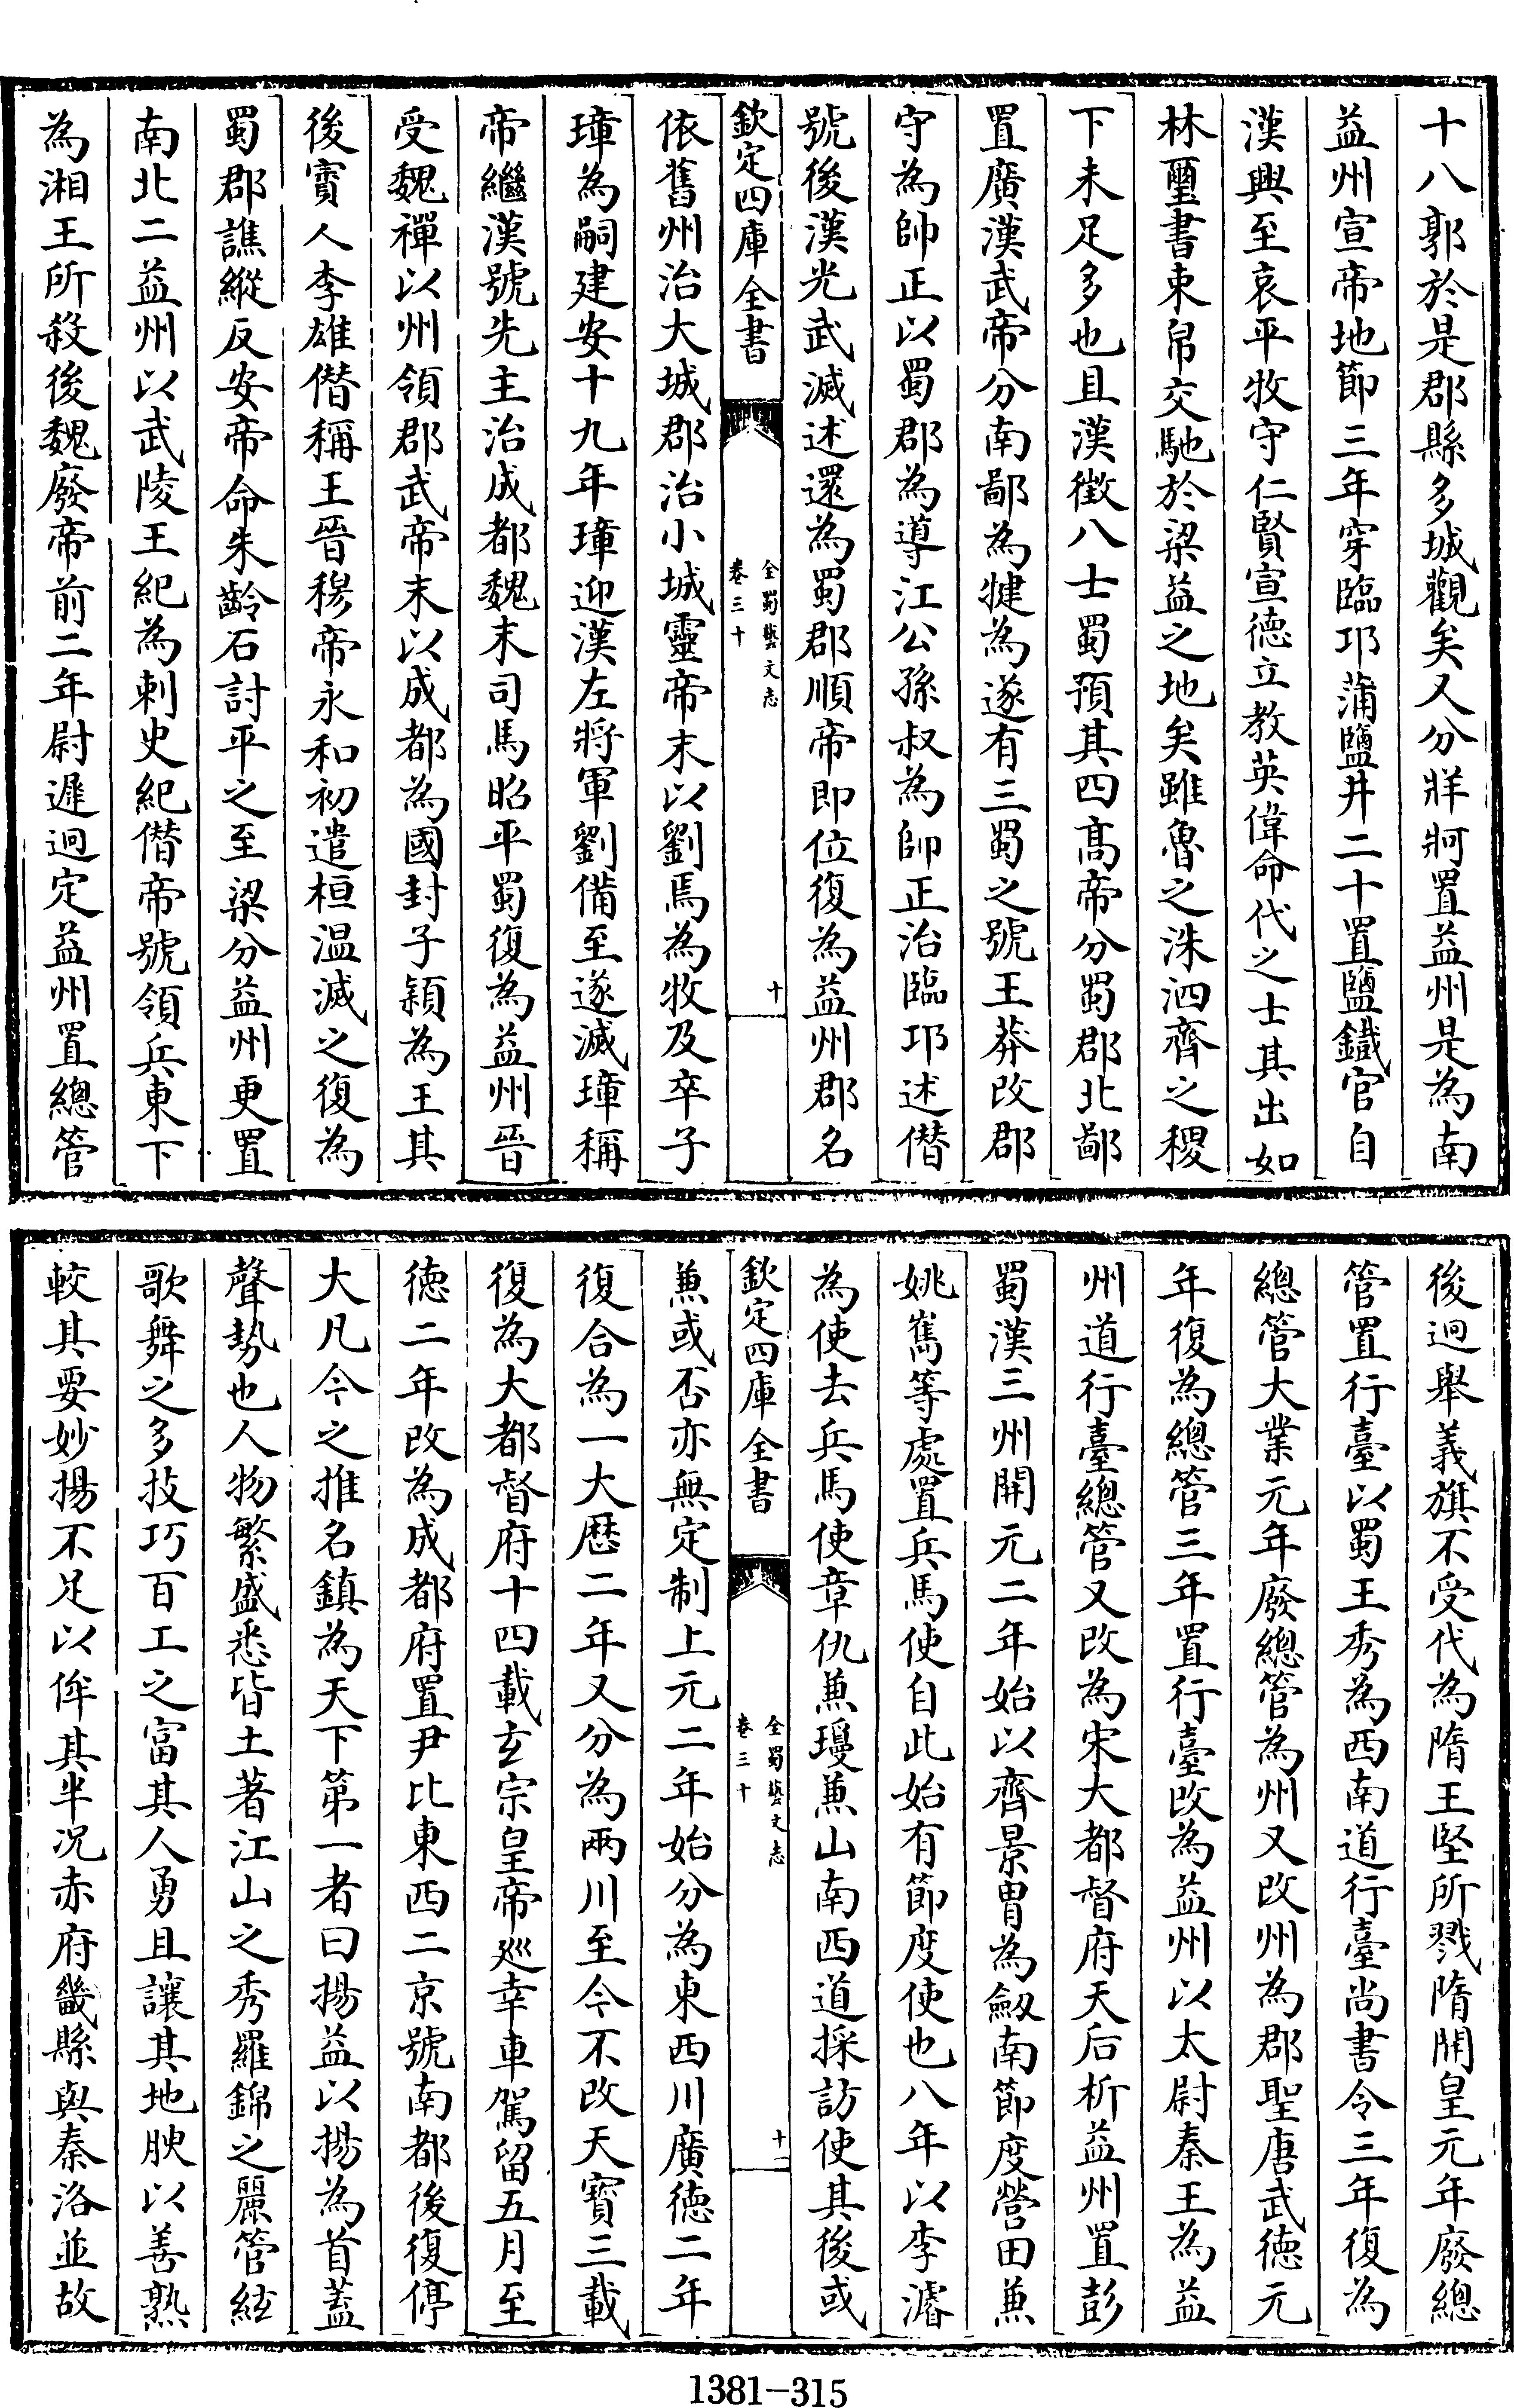 十八郭於是郡縣多城觀矣又分牂牁置益州是為南
益州宣帝地節三年穿臨邛蒲鹽井二十置鹽鐵官自
漢興至哀平牧守仁賢宣德立教英偉命代之士其出如
林璽書束帛交馳於梁益之地矣雖魯之洙泗齊之稷
下未足多也且漢徵八士蜀預其四髙帝分蜀郡北鄙
置廣漢武帝分南鄙為犍為遂有三蜀之號王莽改郡
守為帥正以蜀郡為導江公孫叔為帥正治臨邛述僭
號後漢光武滅述還為蜀郡順帝即位復為益州郡名
欽定四庫全書
全蜀藝文志
卷三十
十
依舊州治大城郡治小城靈帝末以劉焉為牧及卒子
璋為嗣建安十九年璋迎漢左將軍劉備至遂滅璋稱
帝繼漢號先主治成都魏末司馬昭平蜀復為益州晉
受魏禪以州領郡武帝末以成都為國封子頴為王其
後賨人李雄僭稱王晉穆帝永和初遣桓温滅之復為
蜀郡譙縱反安帝命朱齡石討平之至梁分益州更置
南北二益州以武陵王紀為刺史紀僭帝號領兵東下
為湘王所殺後魏廢帝前二年尉遲迥定益州置總管
後迥舉義旗不受代為隋王堅所戮隋開皇元年廢總
管置行臺以蜀王秀為西南道行臺尚書令三年復為
總管大業元年廢總管為州又改州為郡聖唐武德元
年復為總管三年置行臺改為益州以太尉秦王為益
州道行臺總管又改為宋大都督府天后析益州置彭
蜀漢三州開元二年始以齊景胄為劔南節度營田兼
姚嶲等處置兵馬使自此始有節度使也八年以李濬
為使去兵馬使章仇兼瓊兼山南西道採訪使其後或
欽定四庫全書
全蜀藝文志
卷三十
十一
兼或否亦無定制上元二年始分為東西川廣德二年
復合為一大厯二年又分為兩川至今不改天寶三載
復為大都督府十四載玄宗皇帝廵幸車駕留五月至
德二年改為成都府置尹比東西二京號南都後復停
大凡今之推名鎮為天下第一者曰揚益以揚為首蓋
聲勢也人物繁盛悉皆土著江山之秀羅錦之麗管絃
歌舞之多技巧百工之富其人勇且讓其地腴以善熟
較其要妙揚不足以侔其半况赤府畿縣與秦洛並故
1381-315